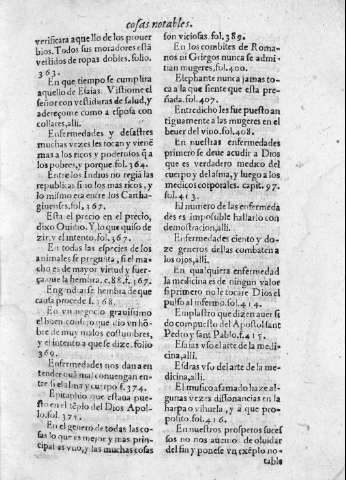 cosas notables.
verificara aquello de los prouer
bios. Todos sus moradores està
vestidos de ropas dobles. folio.
363.
En que tiempo se cumplira
aquello de Esaias. Vistiome el
señor con vestiduras de salud, y
adereçome como a esposa con
collares, alli.
Enfermedades y desastres
muchas vezes les tocan y viene
mas a los ricos y poderosos q̃ a
los pobres, y porque fol. 364.
Entre los Indios no regia las
republicas si no los mas ricos, y
lo mismo era entre los Cartha-
ginenses. fol. 367.
Esta el precio en el precio,
dixo Ouidio. Y lo que quiso de
zir, y el intento. fol. 367.
En todas las especies de los
animales se pregunta, si el ma-
cho es de mayor virtud y fuer-
ça que la hembra. c. 88. f. 367.
Engendrarse hembra de que
causa procede f. 368.
En vn negocio grauissimo
el buen consejo que dio vn hõ-
bre de muy malos costumbres,
y el intento a que se dize. folio
369.
Enfermedades nos dan a en
tender cuã mal conuengan en-
tre si el alma y cuerpo f. 374.
Epitaphio que estaua pue-
sto en el tẽplo del Dios Apol-
lo. fol. 371.
En el genero de todas las co-
sas lo que es mejor y mas prin-
cipal es vno, y las muchas cosas
son viciosas. fol. 389.
En los combites de Roma-
nos ni Griegos nunca se admi-
tian mugeres, fol. 400.
Elephante nunca jamas to-
ca a la que siente que esta pre-
ñada. fol. 407.
Entredicho les fue puesto an
tiguamente a las mugeres en el
beuer del vino. fol. 408.
En nuestras enfermedades
primero se deue acudir a Dios
que es verdadero medico del
cuerpo y del alma, y luego a los
medicos corporales. capit. 97.
fol. 413.
El numero de las enfermeda
des es impossible hallarlo con
demostracion, alli.
Enfermedades ciento y do-
ze generos dellas combaten a
los ojos, alli.
En qualquiera enfermedad
la medicina es de ningun valor
si primero no le tocare Dios el
pulso al infermo. fol. 414.
Emplastro que dizen auer si
do compuesto del Apostol sant
Pedro y sant Pablo. f. 415.
Esaias vso el arte de la medi-
cina, alli.
Esdras vso del arte de la me-
dicina, alli.
El musico afamado haze al-
gunas vezes dissonancias en la
harpa o vihuela, y a que pro-
posito. fol. 416.
En nuestros prosperos suces
sos no nos auemos de oluidar
del fin y ponese vn exẽplo no-
table